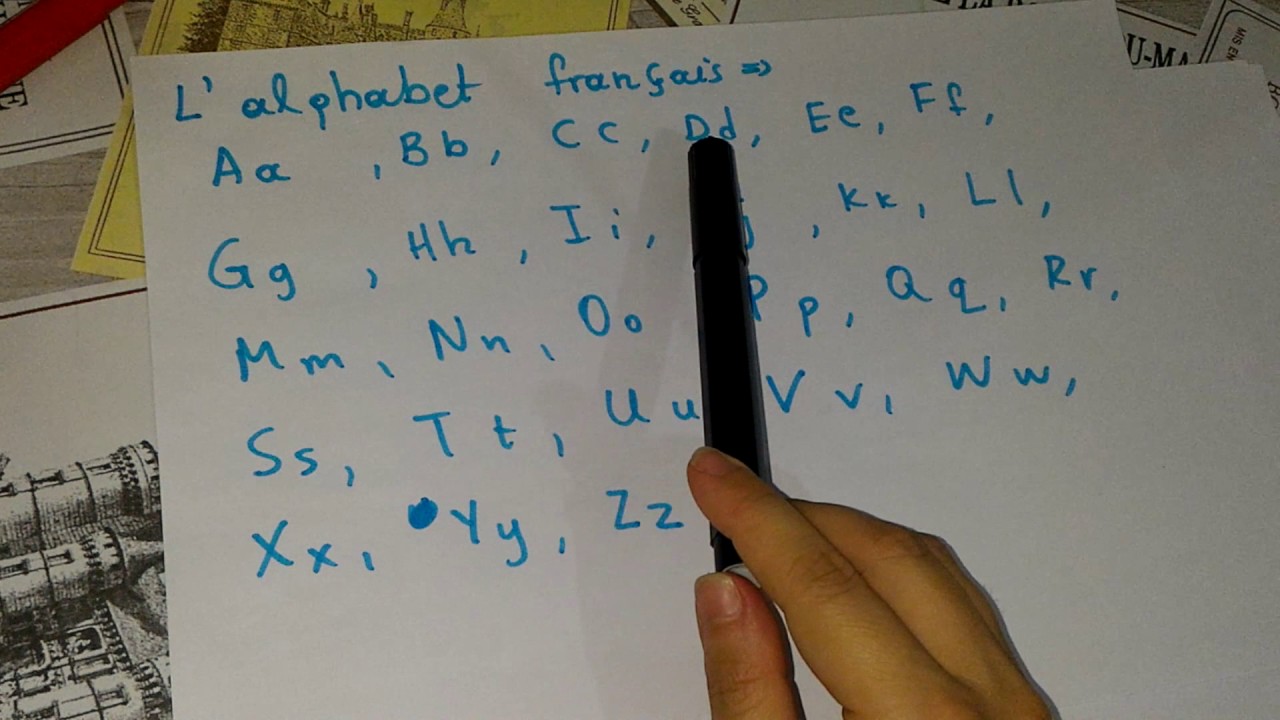 L'alphabet français =>
Aa , Bb, Cc, Dd, Ee, Ff,
Gg , Hh , Ii, j , Kk, Ll,
Mm, Nn, Oo Pp, Qq, Rr,
Ss, Tt, Uu Vv, Ww,
Xx, Yy, Zz
U-MA